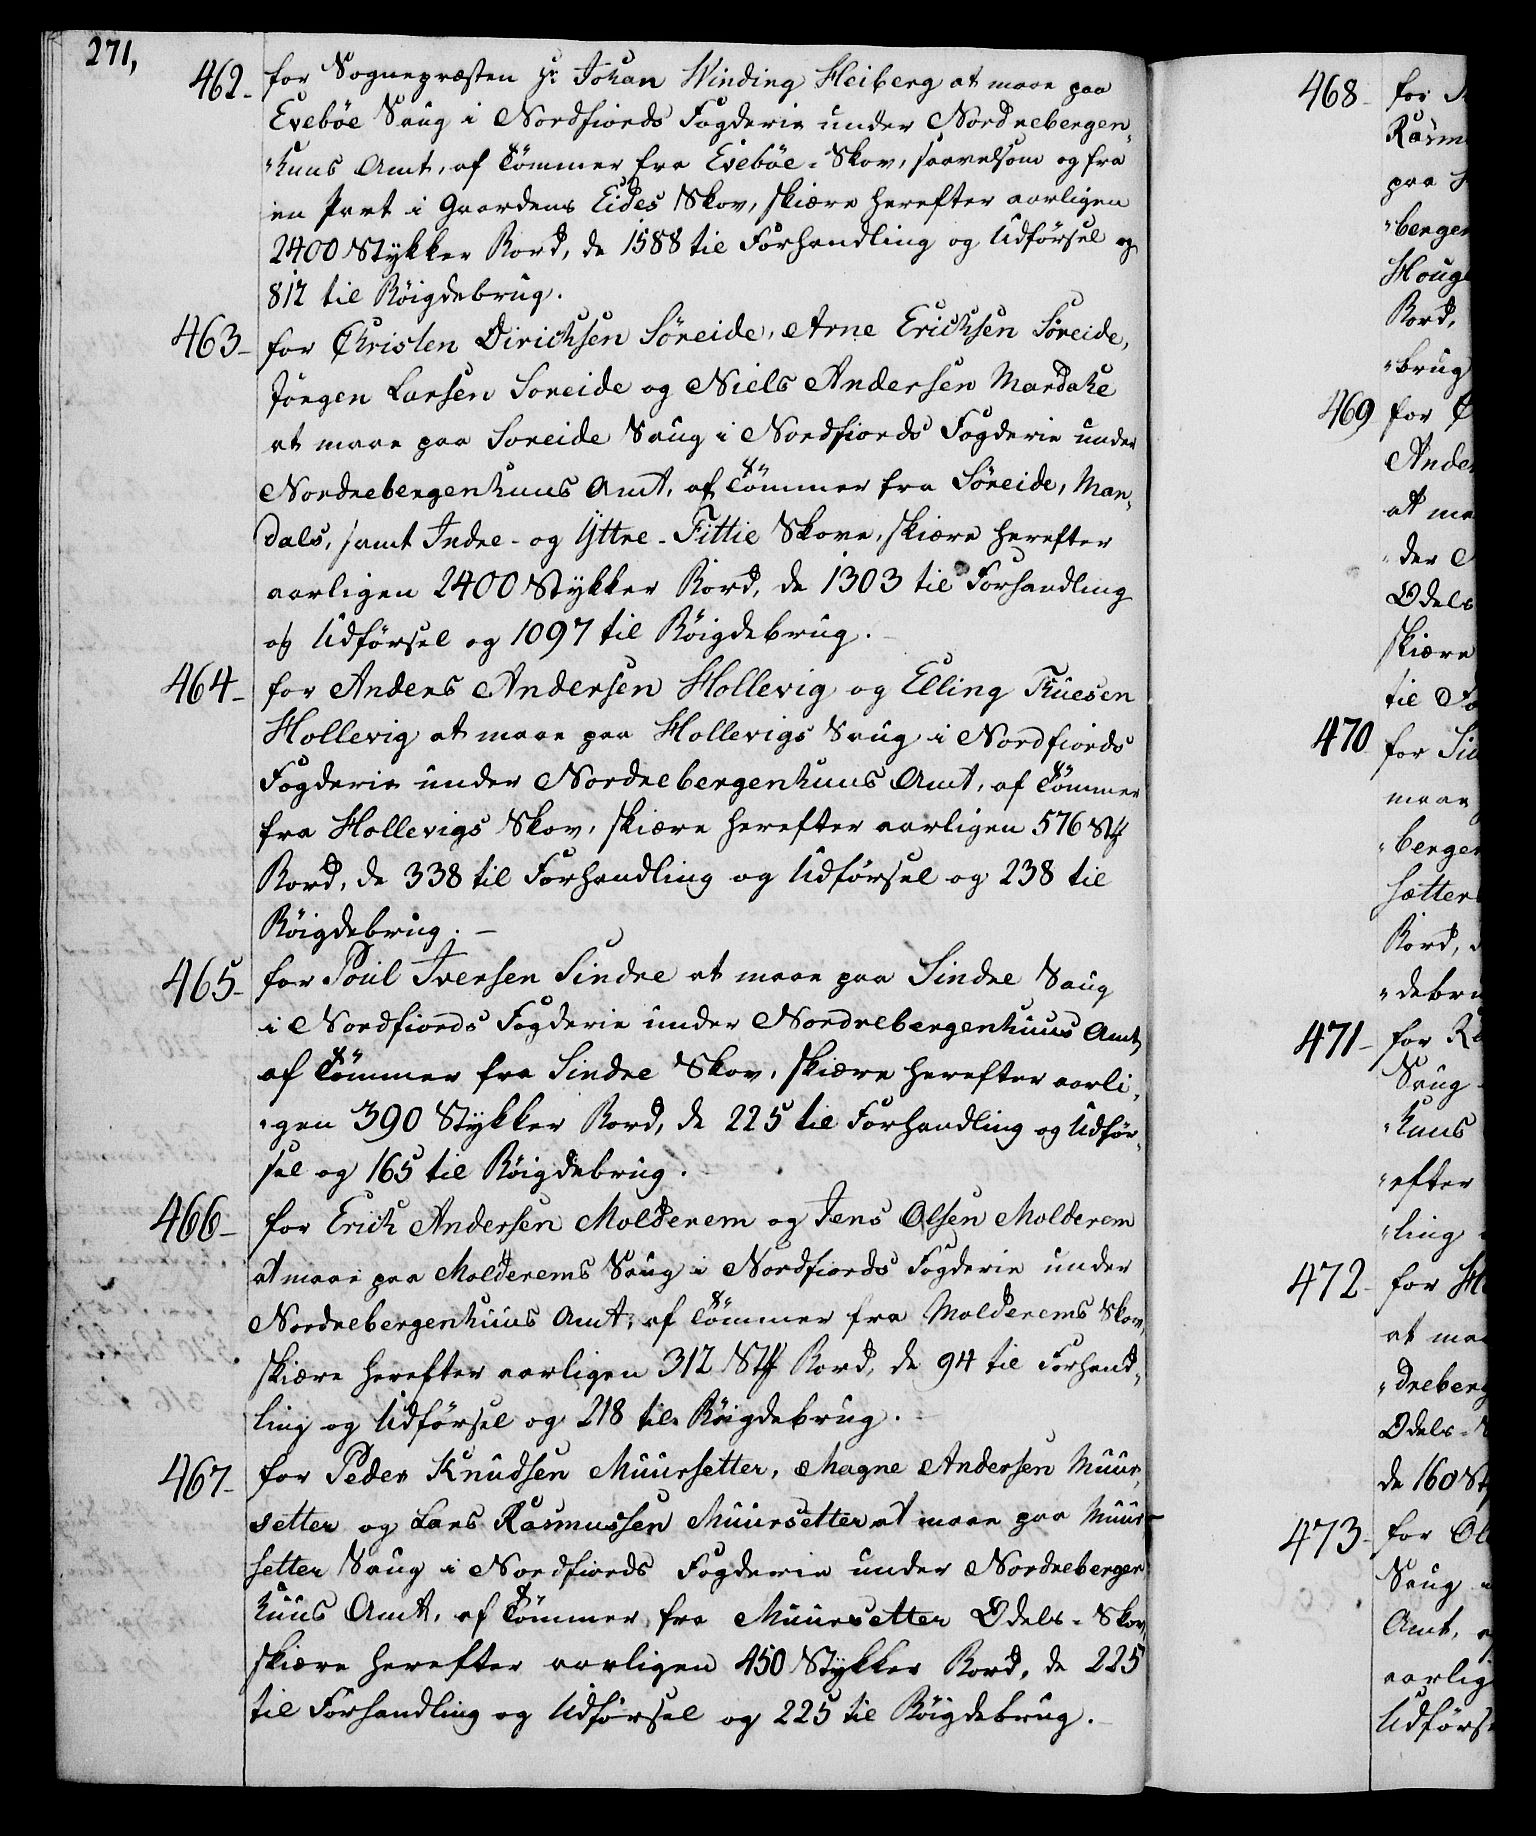 271,
462- for Sognepræsten Hr Johan Winding Heiberg at maae paa
Evebøe Saug i Nordfiords Fogderie under Nordrebergen„
„huus Amt, af Tømmer fra Evebøe-Skov, saavelsom og fra
en Part i Gaardens Eides Skov, skiære herefter aarligen
2400 Stykker Bord, de 1588 til Forhandling og Udførsel og
812 til Bøigdebrug.
463- for Christen Dirichsen Søreide, Arne Erichsen Søreide,
Jørgen Larsen Soreide og Niels Andersen Mardahe
at maae paa Soreide Saug i Nordfiords Fogderie under
Nordrebergenhuus Amt, af Tømmer fra Søreide, Man„
dals, samt Indre- og Yttre-Tittie Skove, skiære herefter
aarligen 2400 Stykker Bord, de 1303 til Forhandling
og Udførsel og 1097 til Bøigdebrug.
464- for Anders Andersen Hollevig og Elling Truesen
Hollevig at maae paa Hollevigs Saug i Nordfiords
Fogderie under Nordrebergenhuus Amt, af Tømmer
fra Hollevigs Skov, skiære herefter aarligen 576 Stk
Bord, de 338 til Forhandling og Udførsel og 238 til
Bøigdebrug.-
465- for Poul Iversen Sindre at maae paa Sindre Saug
i Nordfiords Fogderie under Nordrebergenhuus Amt,
af Tømmer fra Sindre Skov, skiære herefter aarli„
„gen 390 Stykker Bord, de 225 til Forhandling og Udfør„
sel og 165 til Bøigdebrug.
466- for Erich Andersen Molderem og Jens Olsen Molderem
at maae paa Molderems Saug i Nordfiords Fogderie under
Nordrebergenhuus Amt, af Tømmer fra Molderems Skov,
skiære herefter aarligen 312 Stk Bord, de 94 til Forhand„
ling og Udførsel og 218 til Bøigdebrug.
467- for Peder Knudsen Muursetter, Magne Andersen Muur„
setter og Lars Rasmussen Muursetter at maae paa Muur-
setter Saug i Nordfiords Fogderie under Nordrebergen
huus Amt, af Tømmer fra Muursetter Odels-Skov,
skiære herefter aarligen 450 Stykker Bord, de 225
til Forhandling og Udførsel og 225 til Bøigdebrug.-
468- for
Rasm
paa
„bergen
Houg
Bord,
„brug
469 for
Ander
at ma
„der
Odels
skiære
til Fo
470 for
maae
„bergen
sætter
Bord,
„debru
471- for
Saug
„huus
„efter
„ling
472- for
at maa
„dreberg
Odels-
de 160 St
473- for Ol
Saug
Amt,
aarlig
Udførs